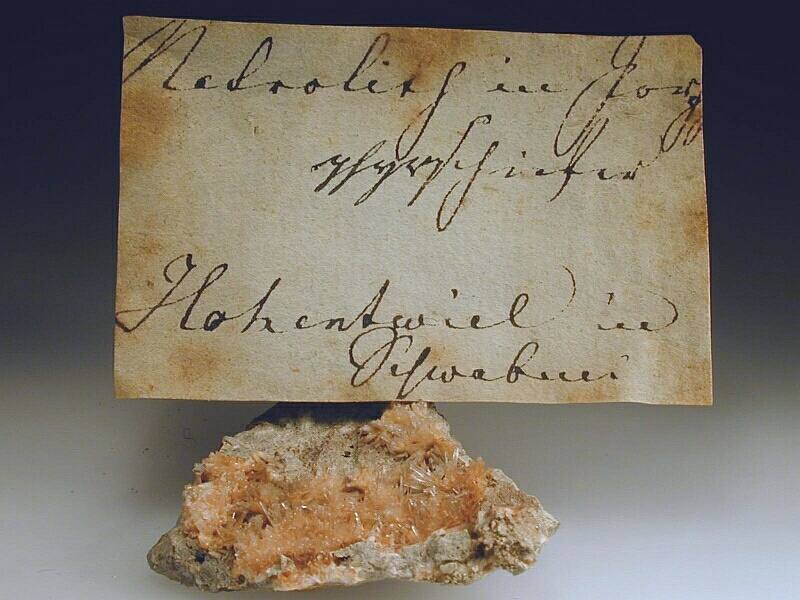 Natrolith in Por
phyrschiefer
Hohentwiel in
Schwaben